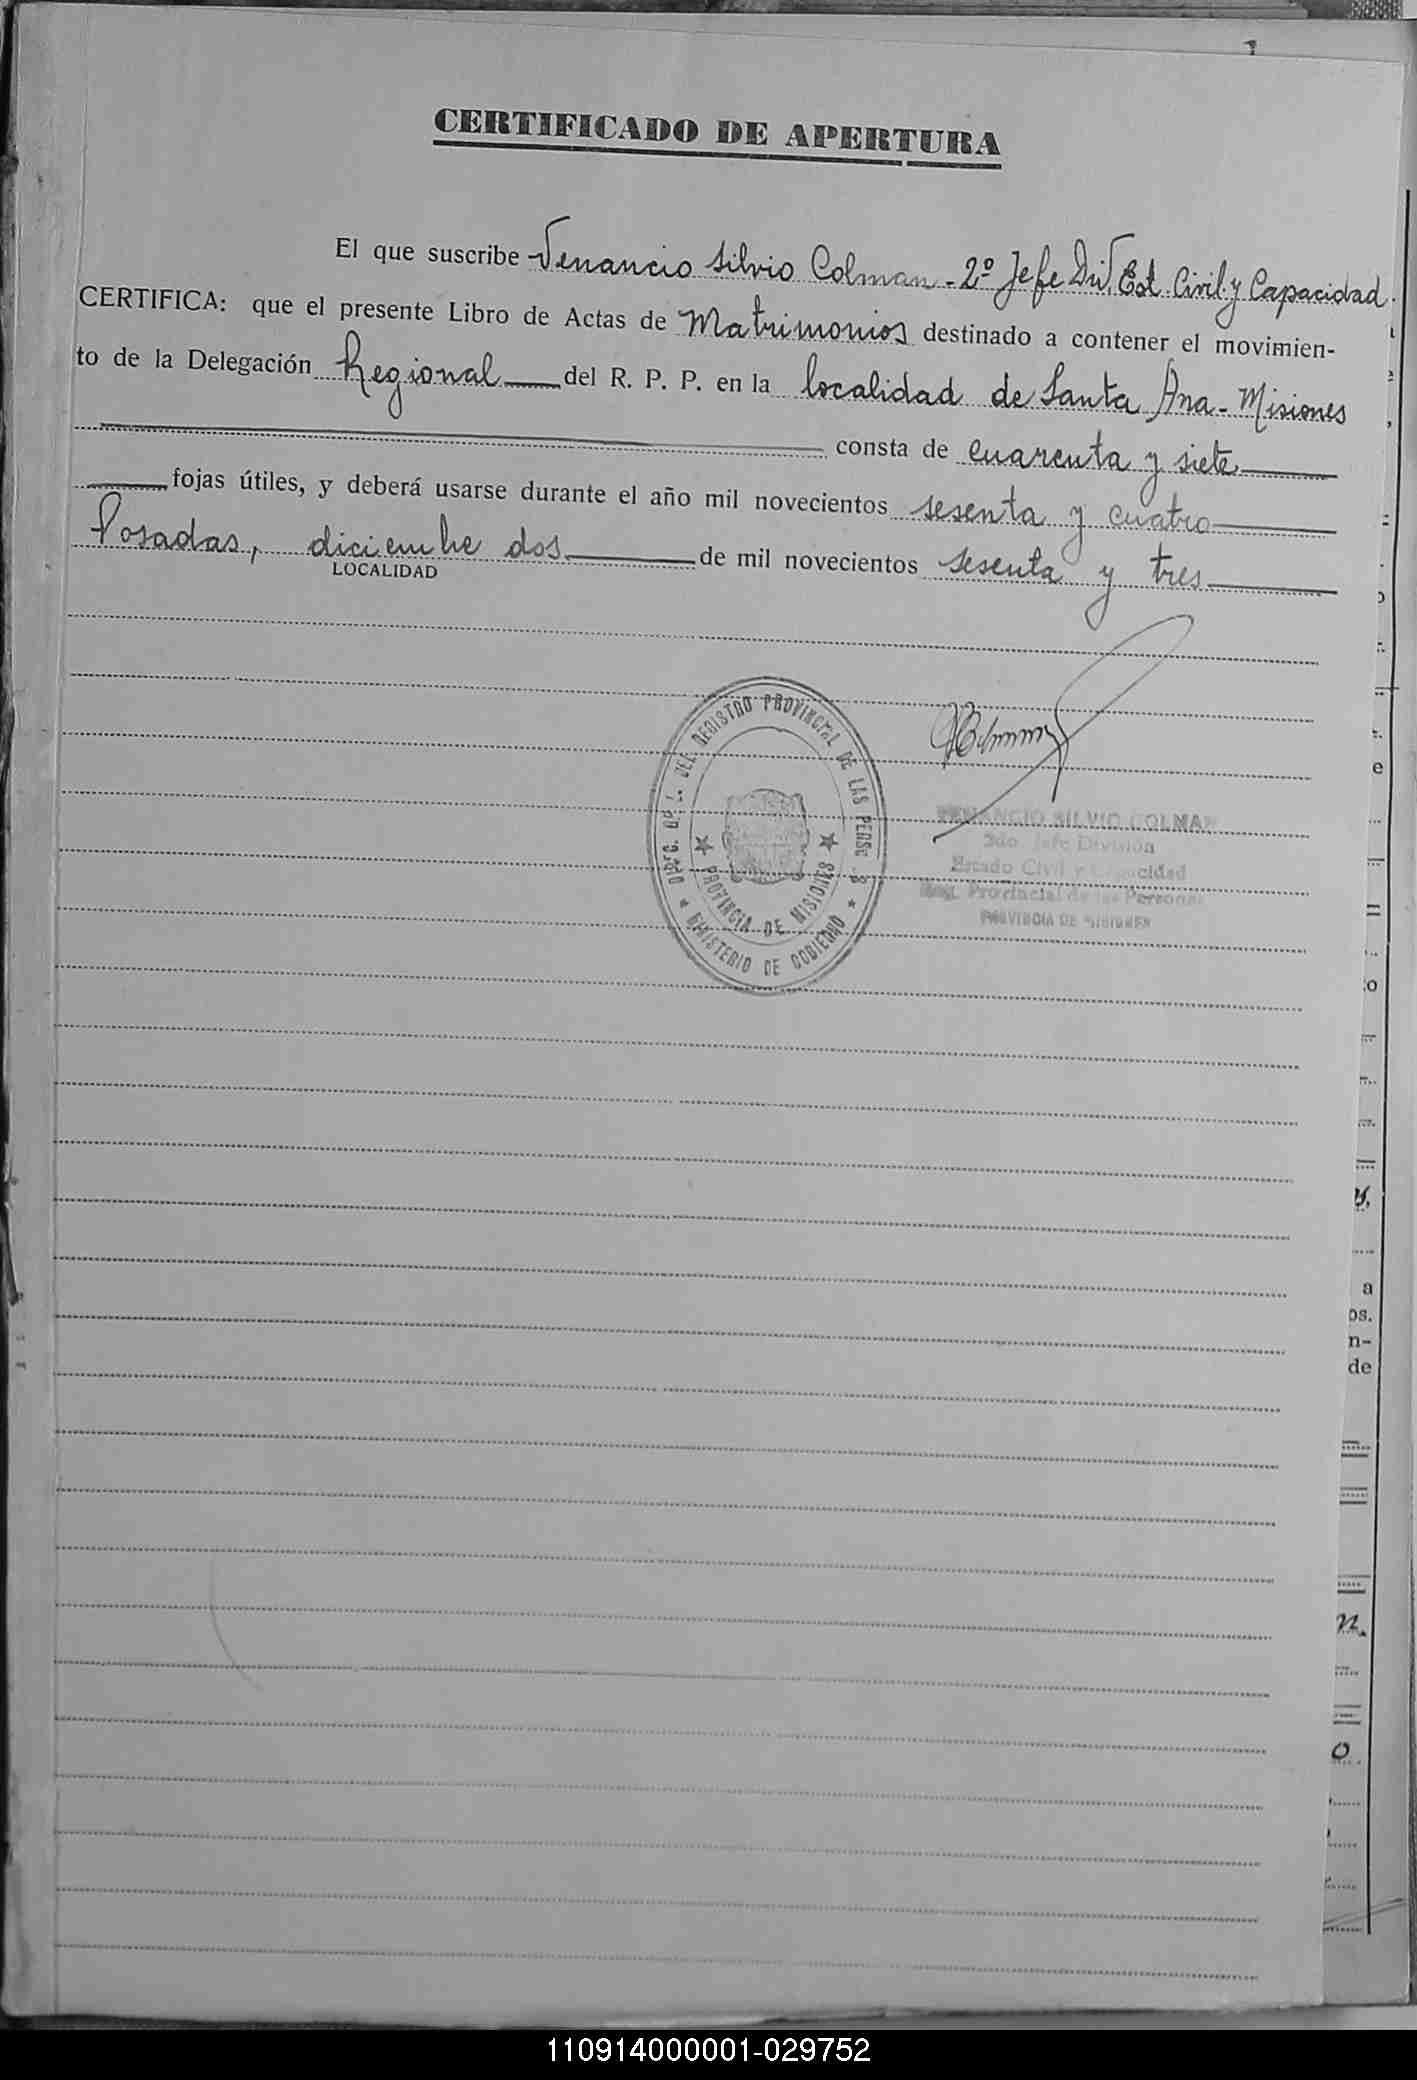 1
CERTIFICADO DE APERTURA
El que suscribe Venancio Silvio Colman - 2º Jefe Div. Est. Civil y Capacidad.
CERTIFICA: que el presente Libro de Actas de Matrimonios destinado a contener el movimien-
to de la Delegación Regional del R. P. P. en la localidad de Santa Ana - Misiones
consta de cuarenta y siete
fojas útiles, y deberá usarse durante el año mil novecientos sesenta y cuatro
Posadas, diciembre dos de mil novecientos sesenta y tres
LOCALIDAD
DEL REGISTRO PROVINCIAL DE LAS PERS
★ PROVINCIA DE MISIONES ★
★ MINISTERIO DE GOBIERNO ★
VENANCIO SILVIO COLMAN
2do. Jefe División
Estado Civil y Capacidad
Reg. Provincial de las Personas
PROVINCIA DE MISIONES
e
o
a
os.
n-
de
n.
o
110914000001-029752